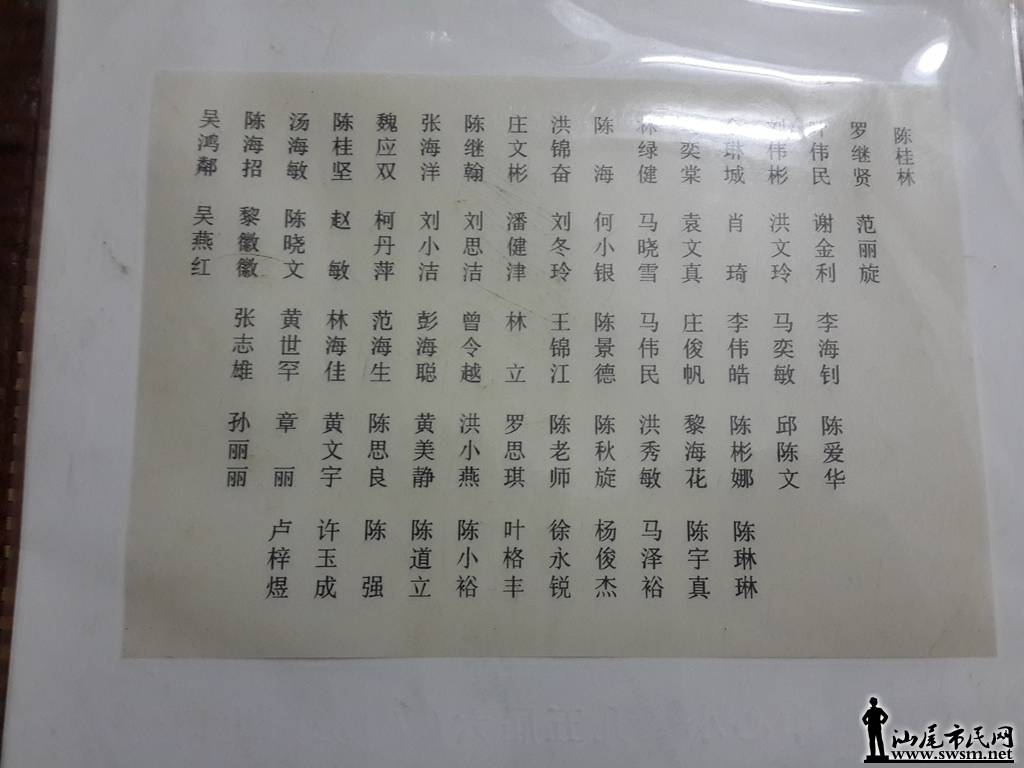 吴鸿鄰 陈海招 汤海敏 陈桂坚 魏应双 张海洋 陈继翰 庄文彬 洪锦奋 陈海 林绿健 奕棠 琳城 刘伟彬 伟民 罗继贤 陈桂林
吴燕红 黎徽徽 陈晓文 赵敏 柯丹萍 刘小洁 刘思洁 潘健津 刘冬玲 何小银 马晓雪 袁文真 肖琦 洪文玲 谢金利 范丽旋
张志雄 黄世罕 林海佳 范海生 彭海聪 曾令越 林立 王锦江 陈景德 马伟民 庄俊帆 李伟皓 马奕敏 李海钊
孙丽丽 章丽 黄文宇 陈思良 黄美静 洪小燕 罗思琪 陈老师 陈秋旋 洪秀敏 黎海花 陈彬娜 邱陈文 陈爱华
卢梓煜 许玉成 陈强 陈道立 陈小裕 叶格丰 徐永锐 杨俊杰 马泽裕 陈宇真 陈琳琳
汕尾市民网
www.swsm.net